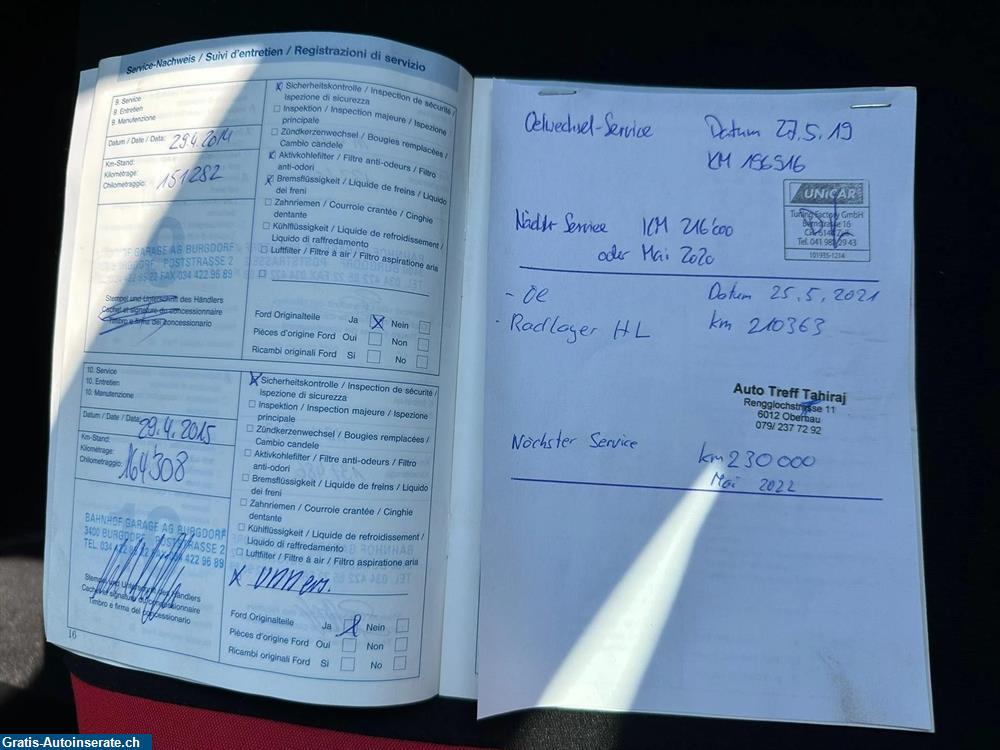 Service-Nachweis / Suivi d'entretien / Registrazioni di servizio
9. Service
9. Entretien
9. Manutenzione
Datum / Date / Data: 29.4.2014
Km-Stand:
Kilométrage:
Chilometraggio: 151282
BURGDORF
POSTSTRASSE 2
FAX 034 422 96 89
Stempel und Unterschrift des Händlers
Cachet et signature du concessionnaire
Timbro e firma del concessionario
X Sicherheitskontrolle / Inspection de sécurité /
Ispezione di sicurezza
Inspektion / Inspection majeure / Ispezione
principale
Zündkerzenwechsel / Bougies remplacées /
Cambio candele
X Aktivkohlefilter / Filtre anti-odeurs / Filtro
anti-odori
X Bremsflüssigkeit / Liquide de freins / Liquido
dei freni
Zahnriemen / Courroie crantée / Cinghie
dentante
Kühlflüssigkeit / Liquide de refroidissement /
Liquido di raffreddamento
Luftfilter / Filtre à air / Filtro aspiratione aria
Ford Originalteile Ja X Nein
Pièces d'origine Ford Oui Non
Ricambi originali Ford Sì No
10. Service
10. Entretien
10. Manutenzione
Datum / Date / Data: 29.4.2015
Km-Stand:
Kilométrage:
Chilometraggio: 164308
BAHNHOF GARAGE AG BURGDORF
3400 BURGDORF POSTSTRASSE 2
TEL. 034 422 FAX 034 422 96 89
Stempel und Unterschrift des Händlers
Cachet et signature du concessionnaire
Timbro e firma del concessionario
X Sicherheitskontrolle / Inspection de sécurité /
Ispezione di sicurezza
Inspektion / Inspection majeure / Ispezione
principale
Zündkerzenwechsel / Bougies remplacées /
Cambio candele
Aktivkohlefilter / Filtre anti-odeurs / Filtro
anti-odori
Bremsflüssigkeit / Liquide de freins / Liquido
dei freni
Zahnriemen / Courroie crantée / Cinghie
dentante
Kühlflüssigkeit / Liquide de refroidissement /
Liquido di raffreddamento
Luftfilter / Filtre à air / Filtro aspiratione aria
X
Ford Originalteile Ja Nein
Pièces d'origine Ford Oui Non
Ricambi originali Ford Sì No
16
Oelwechsel-Service Datum 27.5.19
KM 196916
UNiCAR
Tuning Factory GmbH
Bernstrasse 16
Tel. 041 982 29 43
101935-1214
Nächster Service KM 216'000
oder Mai 2020
- Öl Datum 25.5.2021
- Radlager HL km 210363
Auto Treff Tahiraj
Rengglochstrasse 11
6012 Obernau
079/ 237 72 92
Nöchster Service km 230000
Mai 2022
Gratis-Autoinserate.ch